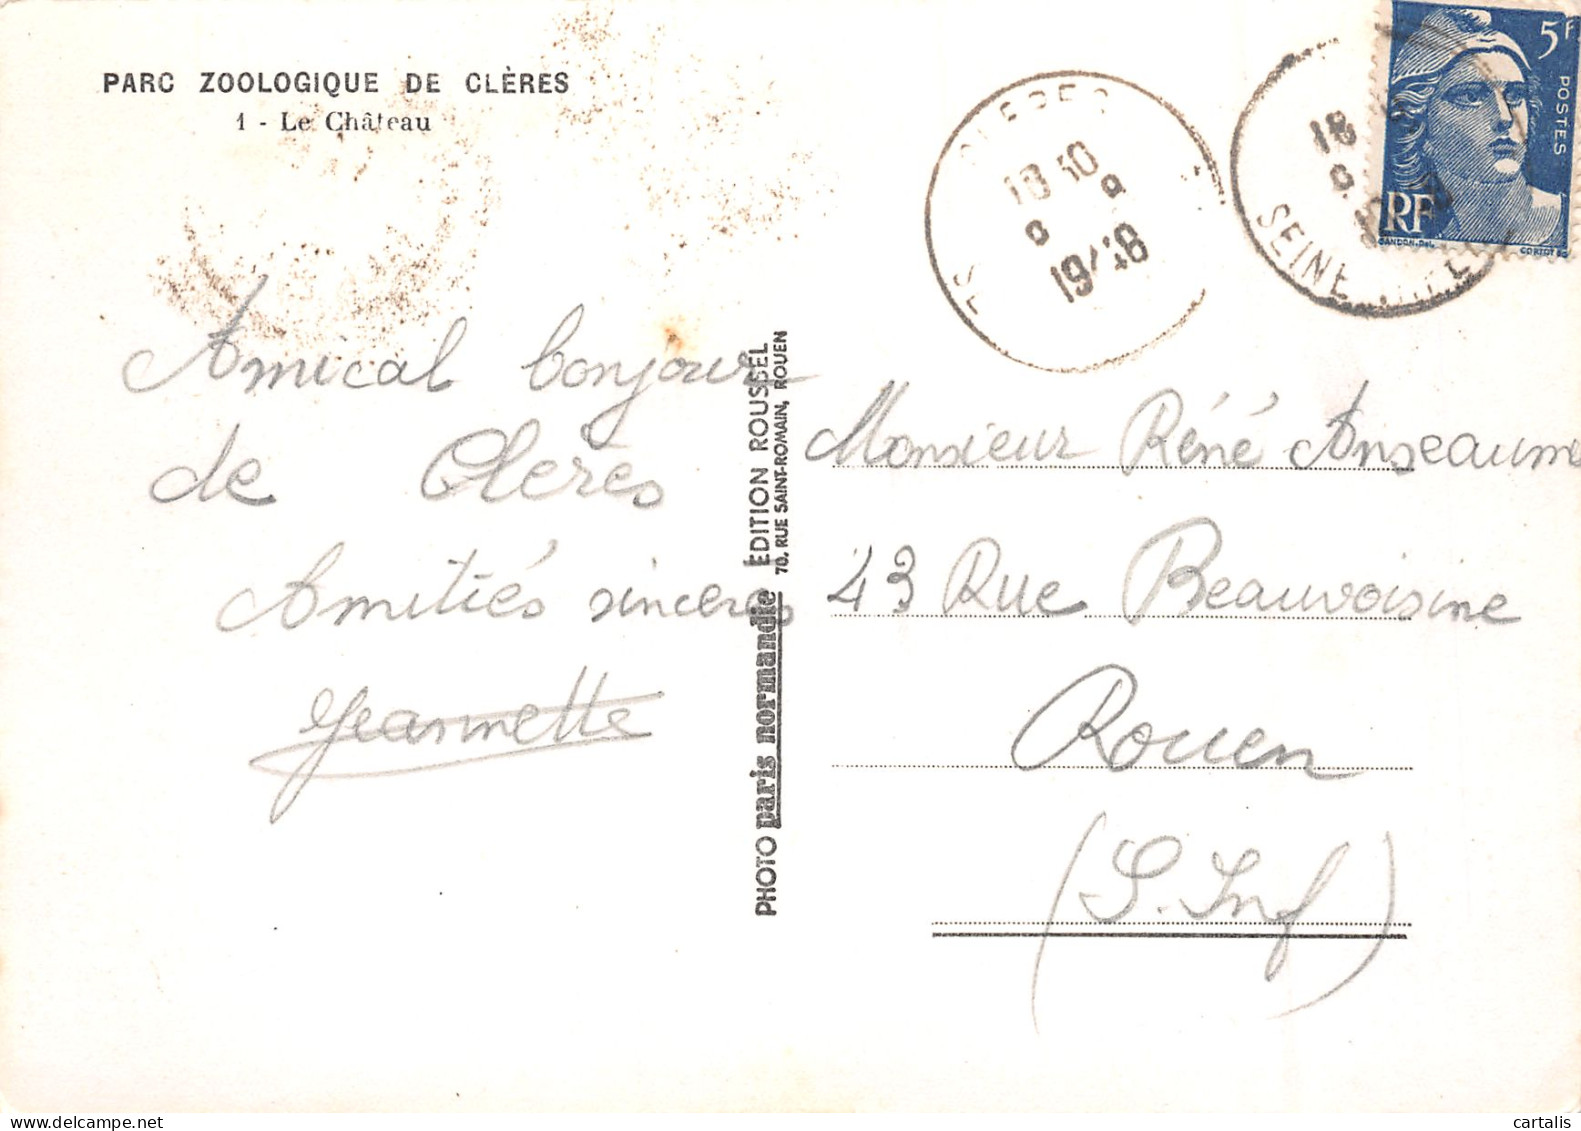 PARC ZOOLOGIQUE DE CLÈRES
1 - Le Château
Amical bonjour
de Cleres
Amitiés sinceres
Jeannette
PHOTO paris normandie ÉDITION ROUSSEL
70, RUE SAINT-ROMAIN, ROUEN
CLERES
18 30
1948
18
SEINE
5F
POSTES
RF
GANDON.Del.
Monsieur Réné Anseaume
43 Rue Beauvoisine
Rouen
(S. Inf)
cartalis